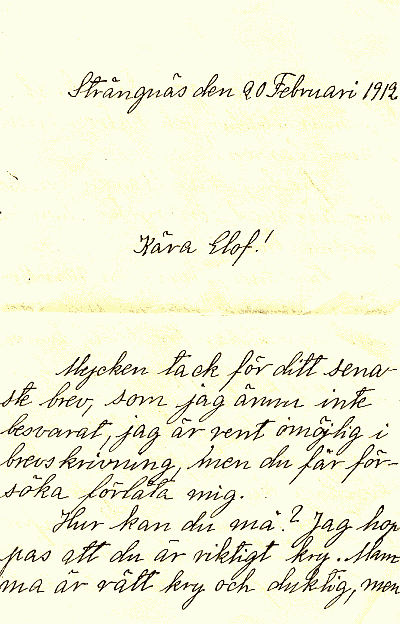 Strängnäs den 20 Februari 1912
Kära Elof!
Mycken tack för ditt sena-
ste brev, som jag ännu inte
besvarat, jag är rent omöjlig i
brevskrivning, men du får för-
söka förlåta mig.
Hur kan du må? Jag hop
pas att du är riktigt kry. Mam
ma är rätt kry och duktig, men